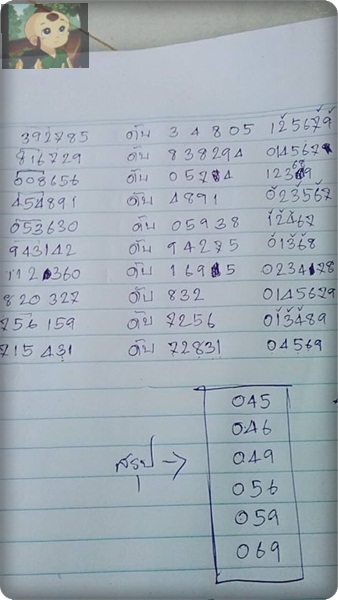 392785 ดับ 34805 125679
816729 ดับ 838294 014567
608656 ดับ 05784 12369
454891 ดับ 4891 023567
053630 ดับ 05938 12467
943142 ดับ 94275 01368
112360 ดับ 16915 0234178
820327 ดับ 832 0145679
756159 ดับ 7256 013489
715431 ดับ 72831 04569
045
046
สรุป → 049
056
059
069